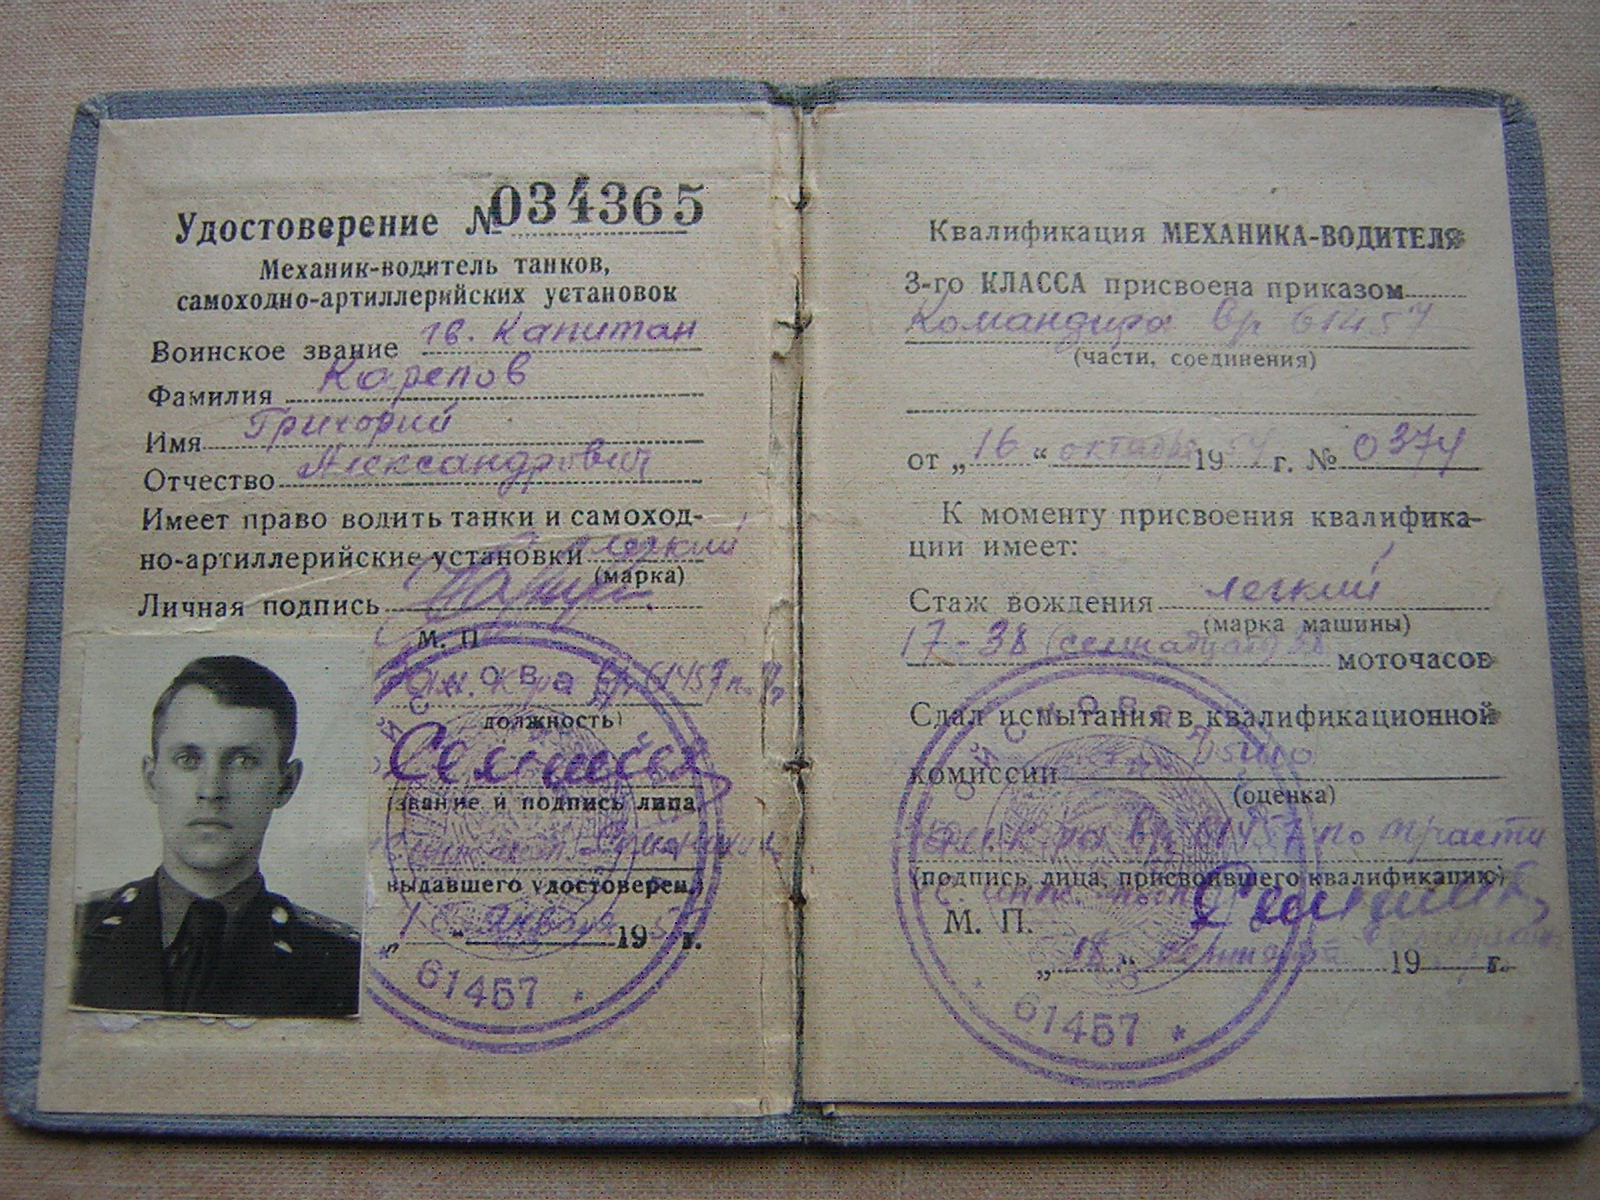 Удостоверение № 034365
Механик-водитель танков,
самоходно-артиллерийских установок
Воинское звание гв. Капитан
Фамилия Карепов
Имя Григорий
Отчество Александрович
Имеет право водить танки и самоход-
но-артиллерийские установки легкий
(марка)
Личная подпись
М. П.
61457
должность)
(звание и подпись лица,
выдавшего удостоверен.)
января 195 г.
61457
Квалификация МЕХАНИКА-ВОДИТЕЛЯ
3-го КЛАССА присвоена приказом
Командира в/ч 61457
(части, соединения)
от „16“ октября 1954 г. № 0374
К моменту присвоения квалифика-
ции имеет:
Стаж вождения легкий
(марка машины)
17-38 (семнадцать) моточасов
Сдал испытания в квалификационной
комиссии
(оценка)
61457 по
(подпись лица, присвоившего квалификацию)
М. П.
„18“ 19 г.
61457